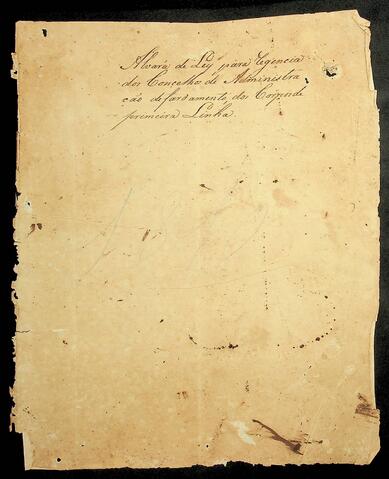 Alvará de Ley para Regencia
dos Concelhos de Administra
ção de fardamento dos Corpos de
premeira Linha.